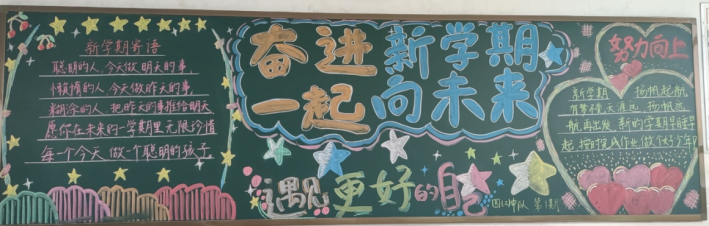 新学期寄语
聪明的人 今天做明天的事
懒惰的人 今天做昨天的事
糊涂的人 把昨天的事推给明天
愿你在未来的一学期里无限珍惜
每一个今天 做一个聪明的孩子
奋进新学期
一起向未来
遇见更好的自己
四(2)中队 第1期
努力向上
新学期 扬帆起航
有梦便天涯远 扬帆远
航再出发 新的学期早睡早
起 按时完成作业 做个好少年